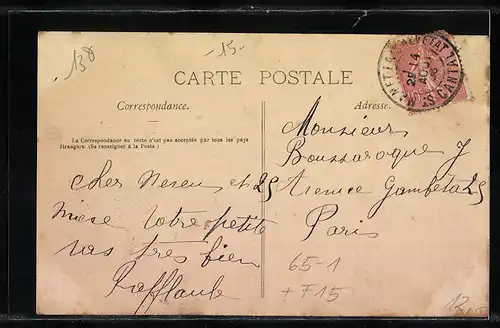 138
15
CARTE POSTALE
Correspondance.
Adresse.
La Correspondance au recto n'est pas acceptée par tous les pays
étrangers. (Se renseigner à la Poste.)
cher Neveu et
Niece Votre petite
vas tres bien
Monsieur
Boussaroque J
25 Avenue Gambeta 25
Paris
65-1
+ F15
12